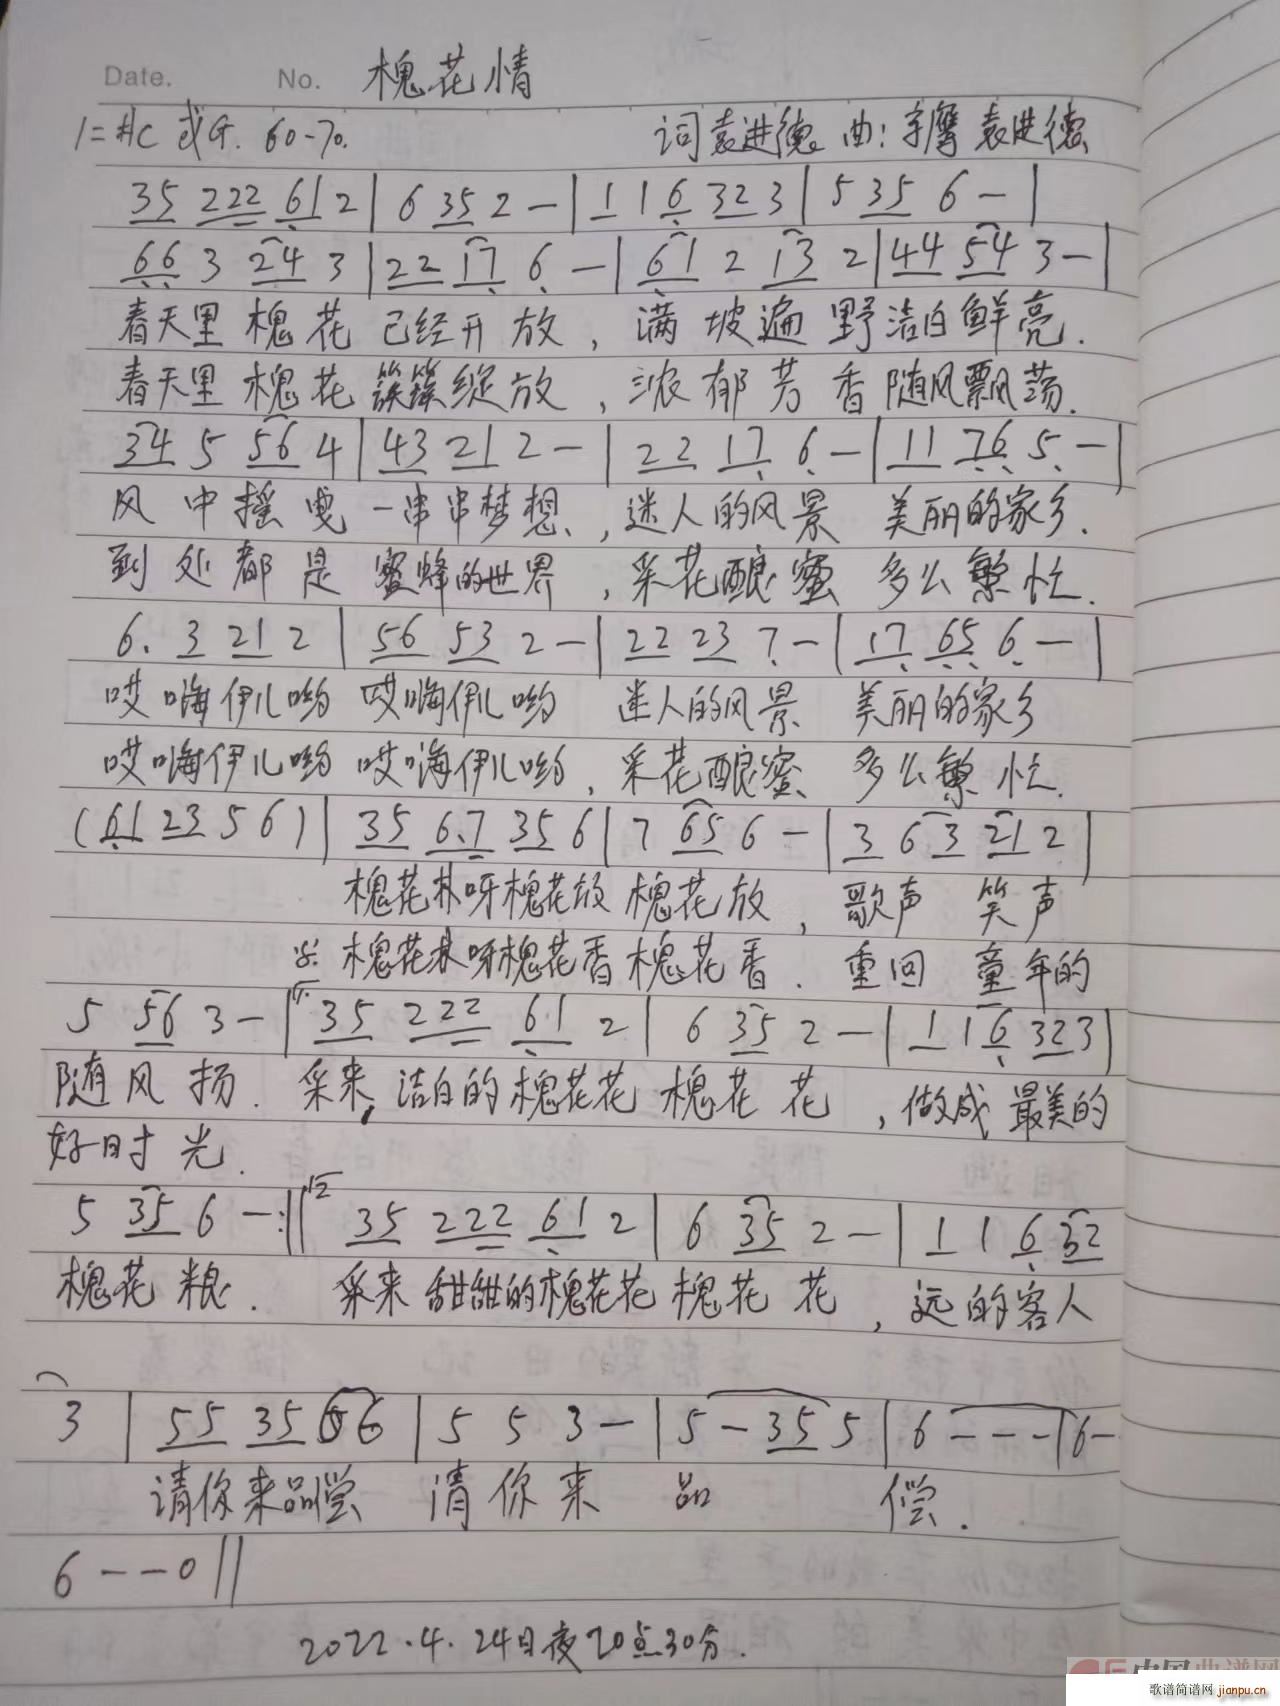 Date. No. 槐花情
1=#C 或G. 60-70. 词袁进德 曲:宇鹰 袁进德
35 222 61 2 | 6 35 2 - | 1 1 6 32 3 | 5 35 6 - |
66 3 24 3 | 22 17 6 - | 61 2 13 2 | 44 54 3 - |
春天里 槐花 已经开放, 满坡遍野洁白鲜亮.
春天里 槐花 簇簇绽放, 浓郁芳香随风飘荡.
34 5 56 4 | 43 21 2 - | 22 17 6 - | 11 76 5 - |
风中摇曳 一串串梦想, 迷人的风景 美丽的家乡.
到处都是 蜜蜂的世界, 采花酿蜜 多么繁忙.
6. 3 21 2 | 56 53 2 - | 22 23 7 - | 17 65 6 - |
哎嗨伊儿哟 哎嗨伊儿哟 迷人的风景 美丽的家乡
哎嗨伊儿哟 哎嗨伊儿哟, 采花酿蜜 多么繁忙.
(61 23 5 6) | 35 6.7 35 6 | 7 65 6 - | 3 6 3 21 2 |
槐花林呀槐花放 槐花放, 歌声 笑声
槐花林呀槐花香 槐花香. 重回 童年的
5 56 3 - | 1. 35 222 61 2 | 6 35 2 - | 1 1 6 32 3 |
随风扬. 采来,洁白的槐花花 槐花花, 做成最美的
好时光.
5 35 6 - :|| 2 35 222 61 2 | 6 35 2 - | 1 1 6 32
槐花粮. 采来甜甜的槐花花 槐花花, 远的客人
3 | 55 35 66 | 5 5 3 - | 5 - 35 5 | 6 - - - | 6 -
请你来品尝 请你来 品 偿.
6 - - 0 ||
2022.4.24日夜20点30分.
中国曲谱网
歌谱简谱网 jianpu.cn